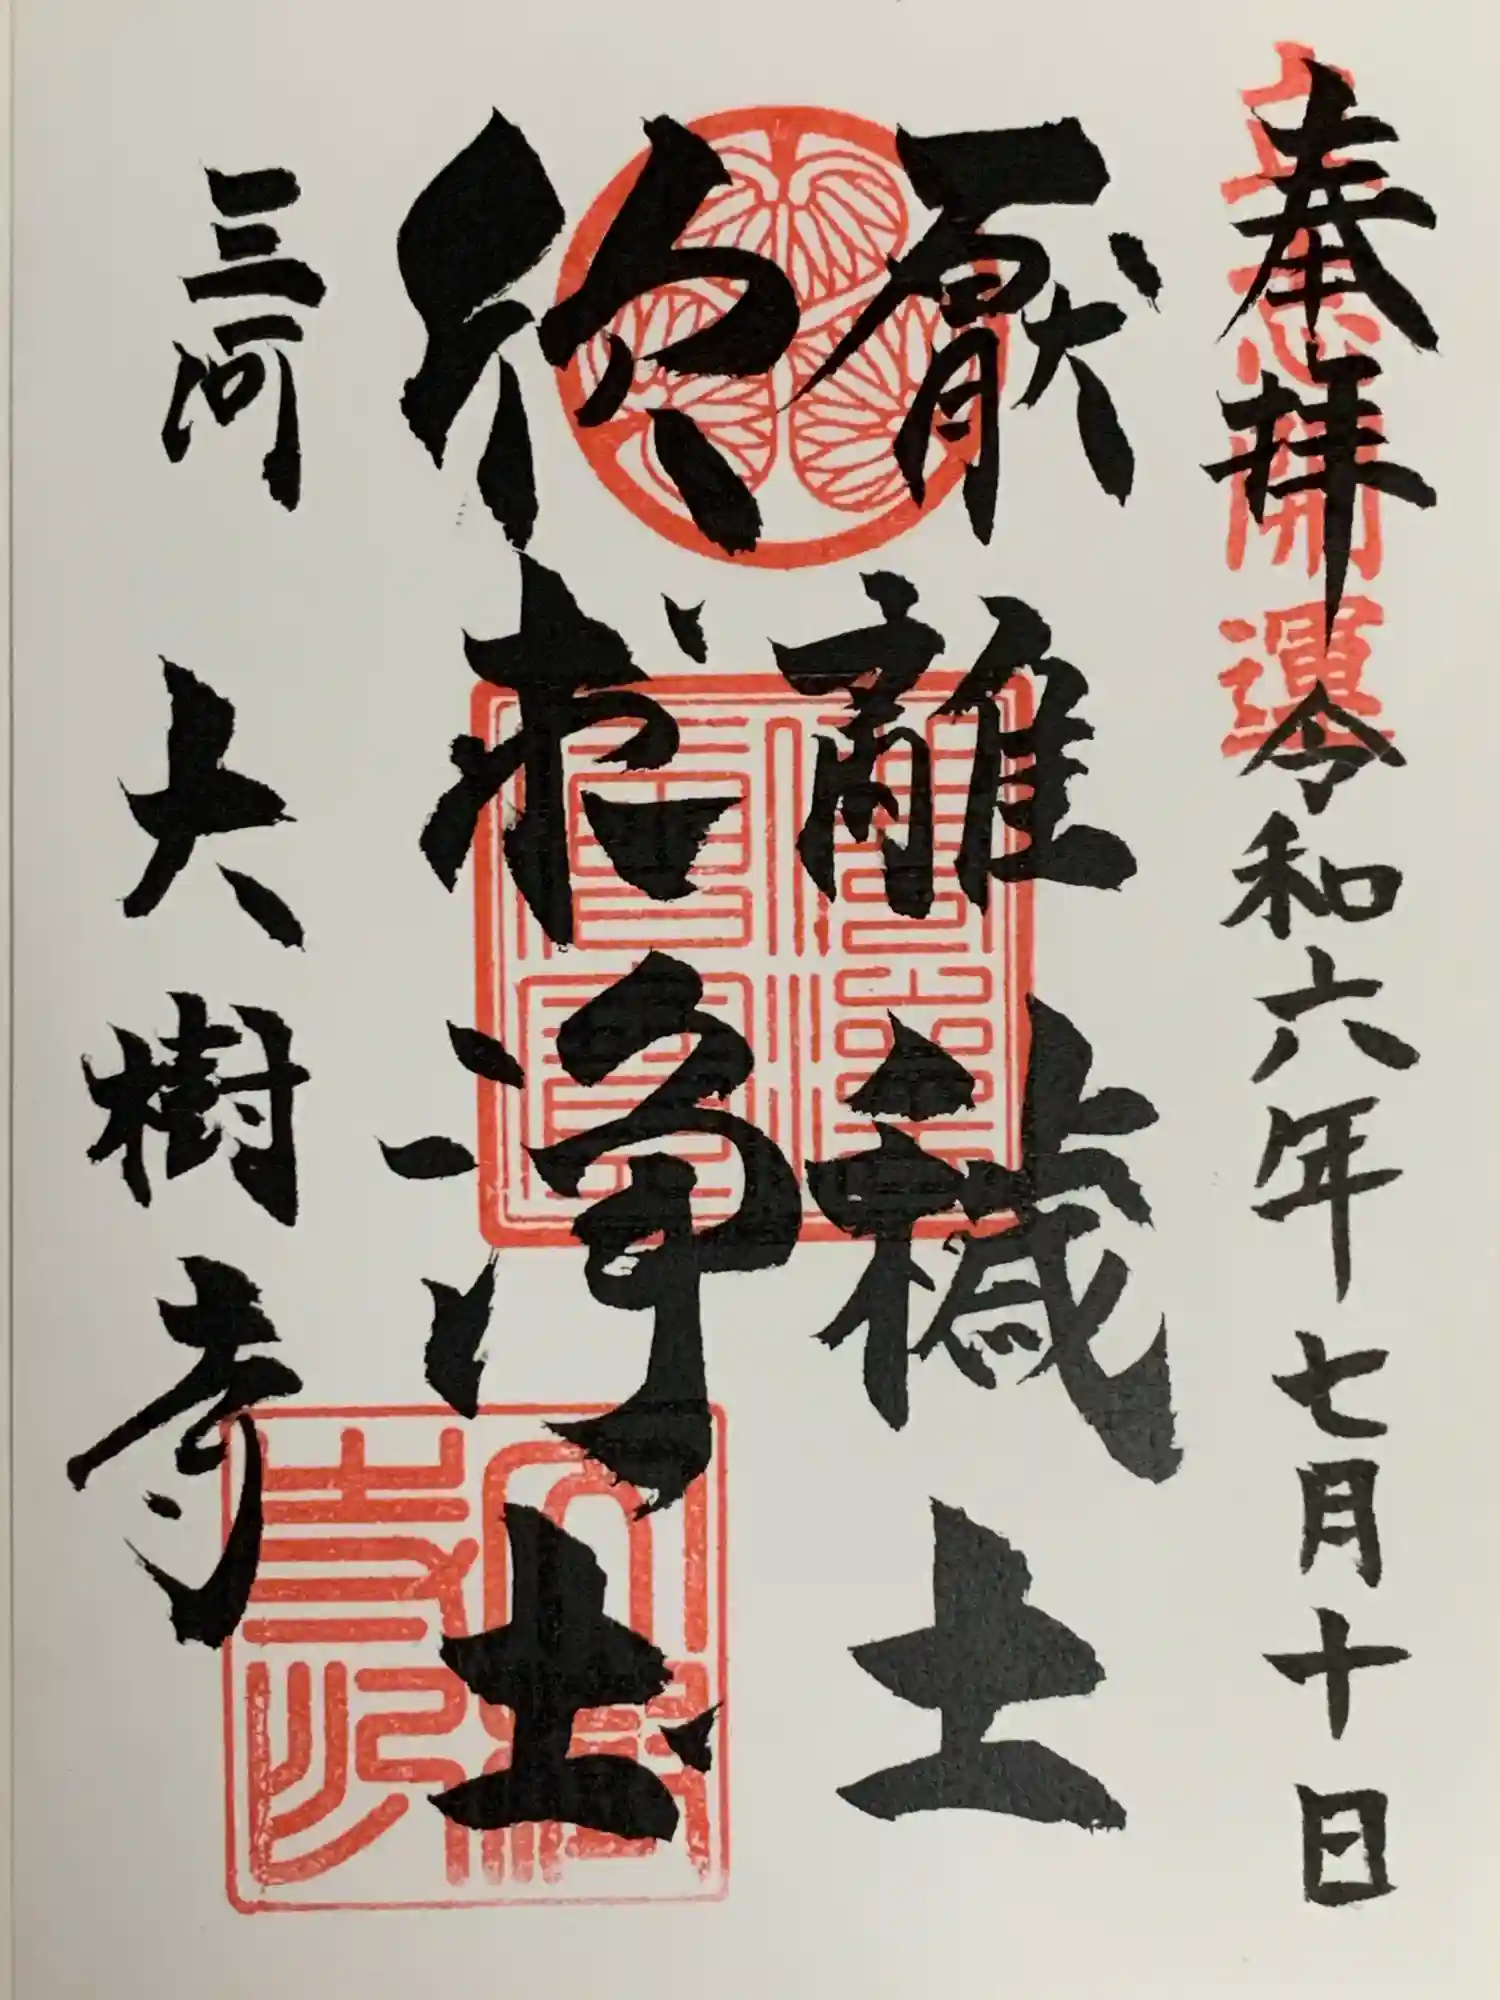 奉拝 令和六年七月十日
厭離穢土
欣求浄土
三河 大樹寺
開運